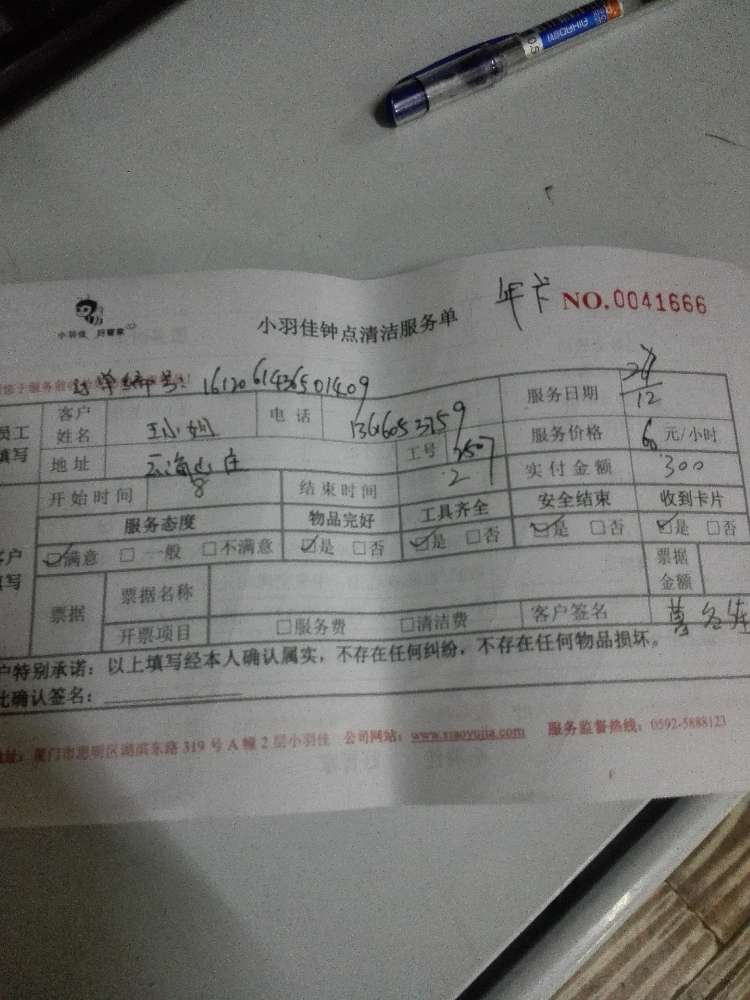 小羽佳 好管家
小羽佳钟点清洁服务单
年卡 NO.0041666
订单编号:1612061436501409
员工填写
客户姓名 王小姐 电话 13616053759 服务日期 /12
地址 云海山庄 工号 2507 服务价格 60 元/小时
开始时间 8 结束时间 2 实付金额 300
服务态度 物品完好 工具齐全 安全结束 收到卡片
☑满意 □一般 □不满意 ☑是 □否 ☑是 □否 ☑是 □否 ☑是 □否
票据 票据名称 票据金额
开票项目 □服务费 □清洁费 客户签名
户特别承诺:以上填写经本人确认属实,不存在任何纠纷,不存在任何物品损坏。
此确认签名:
地址:厦门市思明区湖滨东路319号A幢2层小羽佳 公司网站:www.xiaoyujia.com 服务监督热线:0592-5888123
0.5